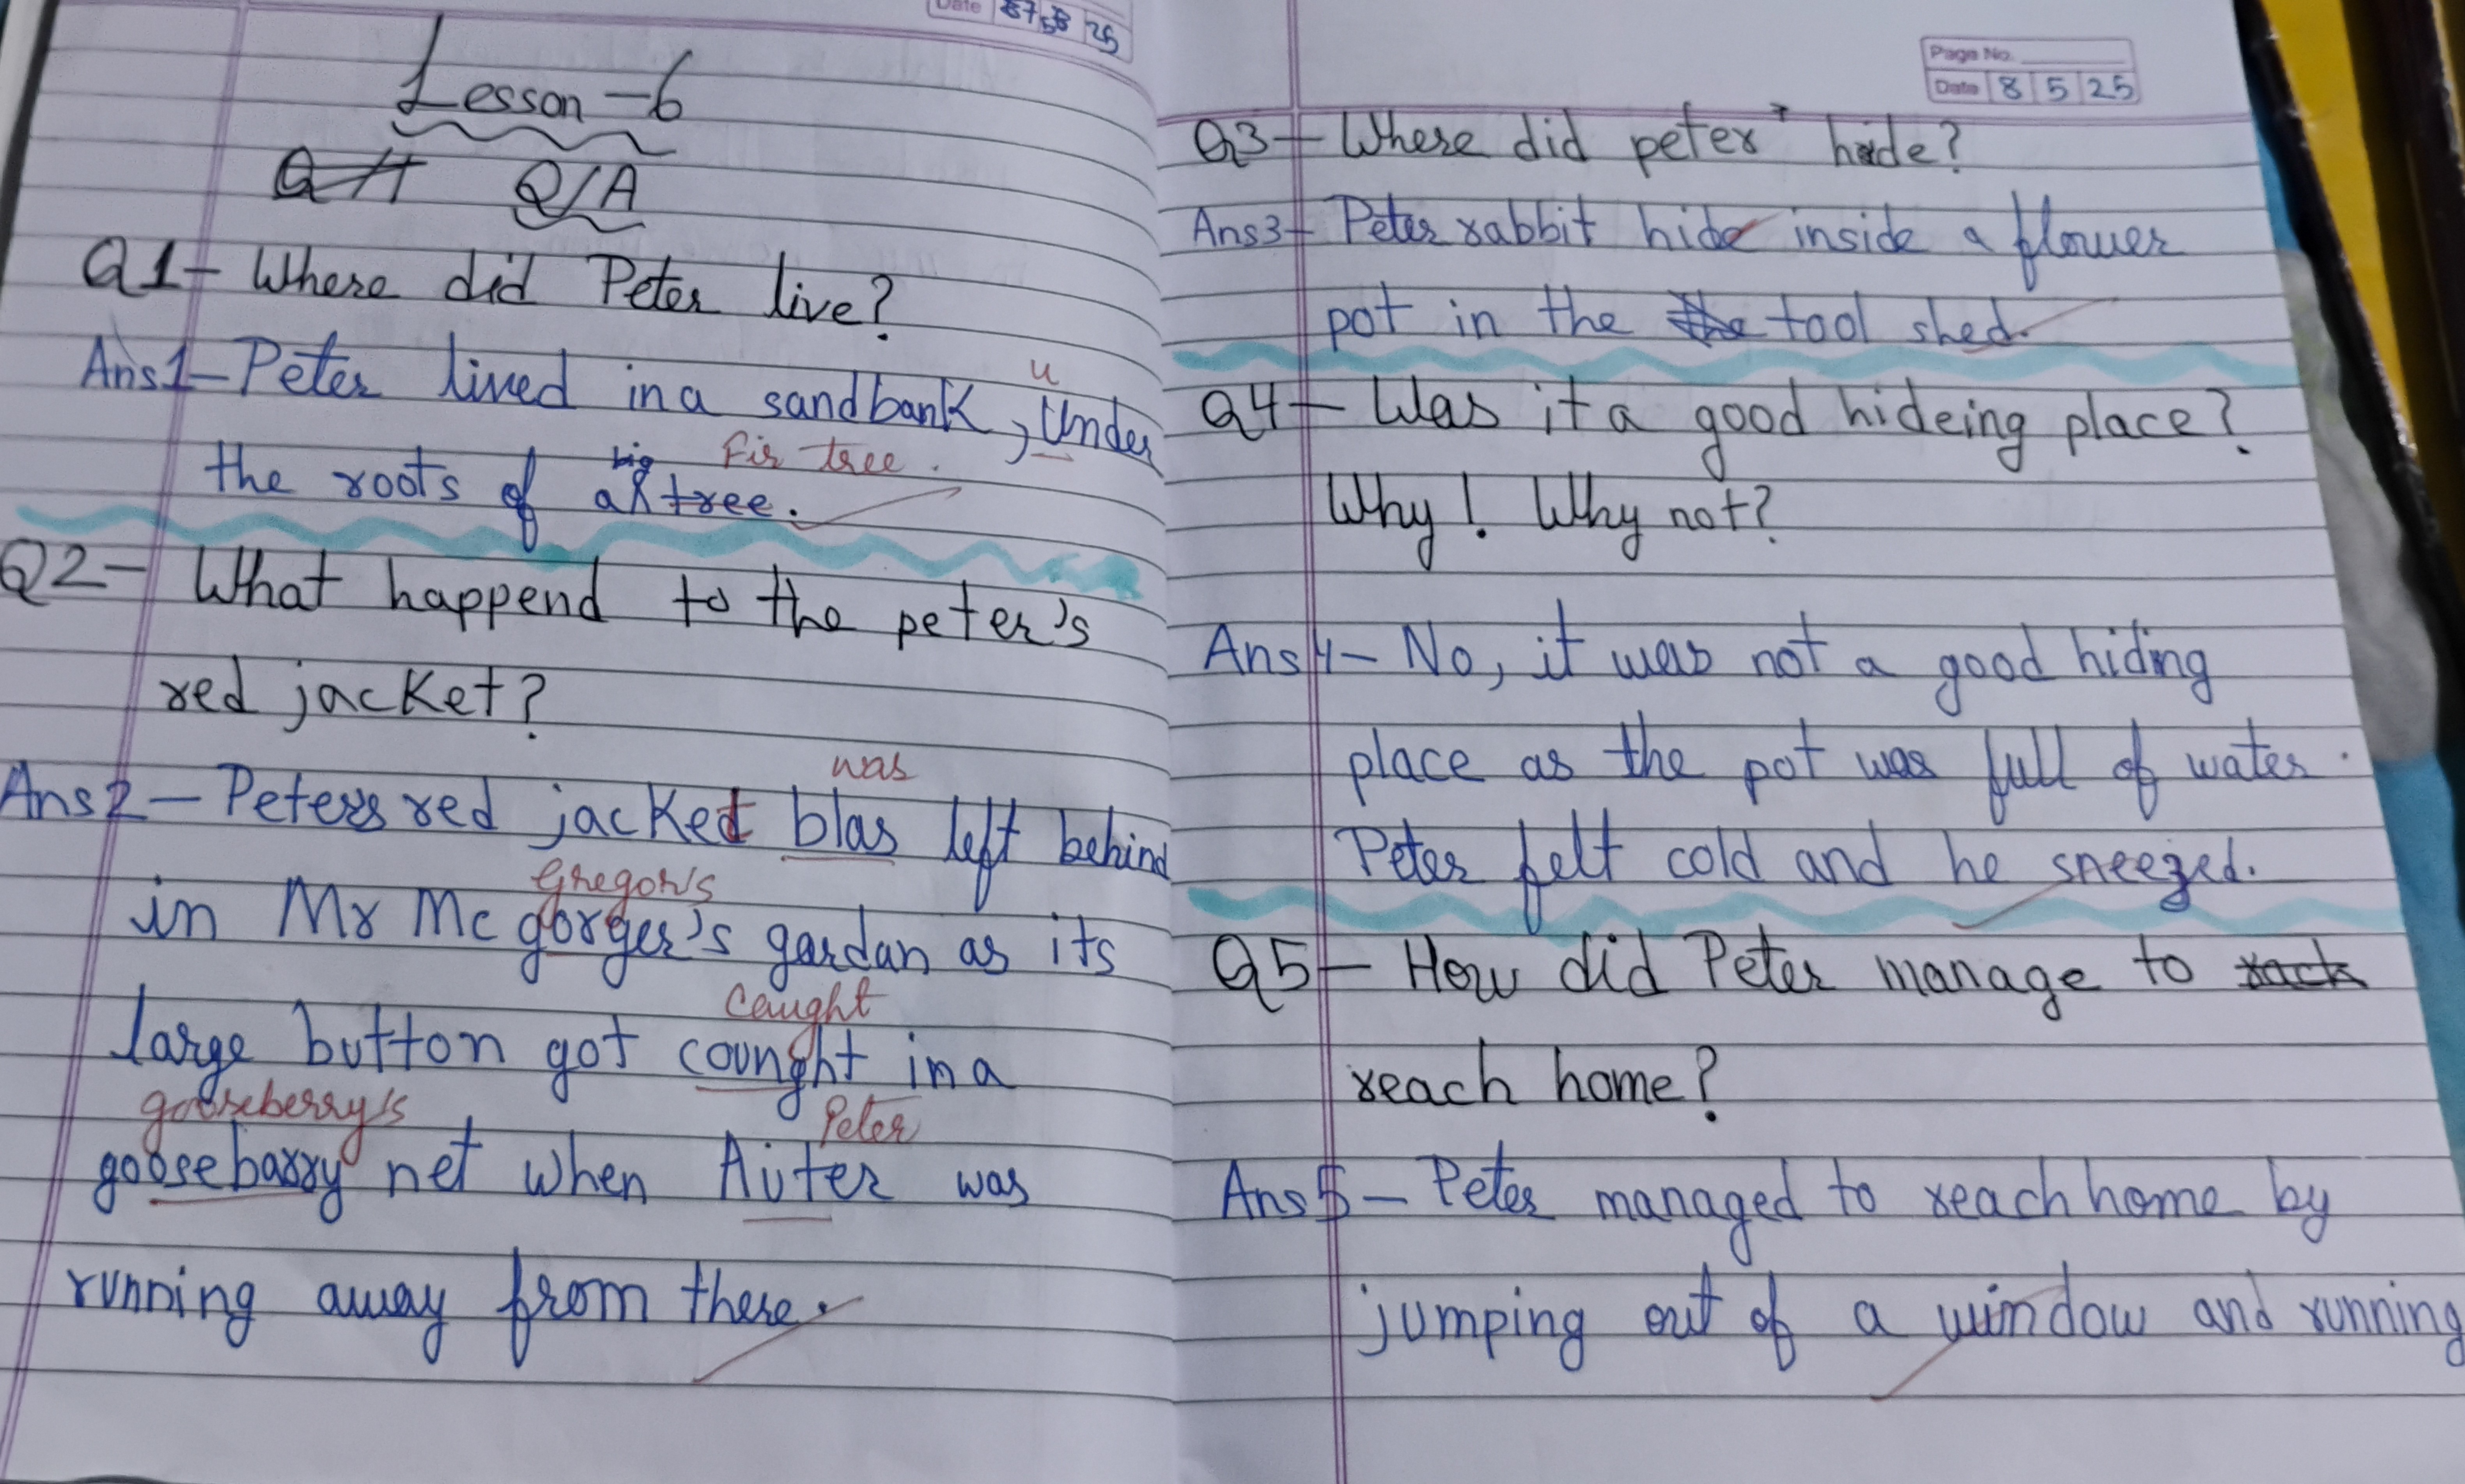 Date 7 5 25
Lesson-6
Q/A
Q1- Where did Peter live?
Ans1- Peter lived in a sandbank, Under
u
the roots of a big tree.
Fir tree.
Q2- What happend to the peter's
red jacket?
Ans2- Peter's red jacket blas left behind
was
in Mr Mc gorger's gardan as its
Gregor's
large button got counght in a
Caught
goosebarry net when Aiter was
gooseberry's
Peter
running away from there.
Page No.
Date 8 5 25
Q3- Where did peter hide?
Ans3- Peter rabbit hide inside a flower
pot in the the tool shed.
Q4- Was it a good hideing place?
Why! Why not?
Ans4- No, it was not a good hiding
place as the pot was full of water.
Peter felt cold and he sneezed.
Q5- How did Peter manage to
reach home?
Ans5- Peter managed to reach home by
jumping out of a window and running